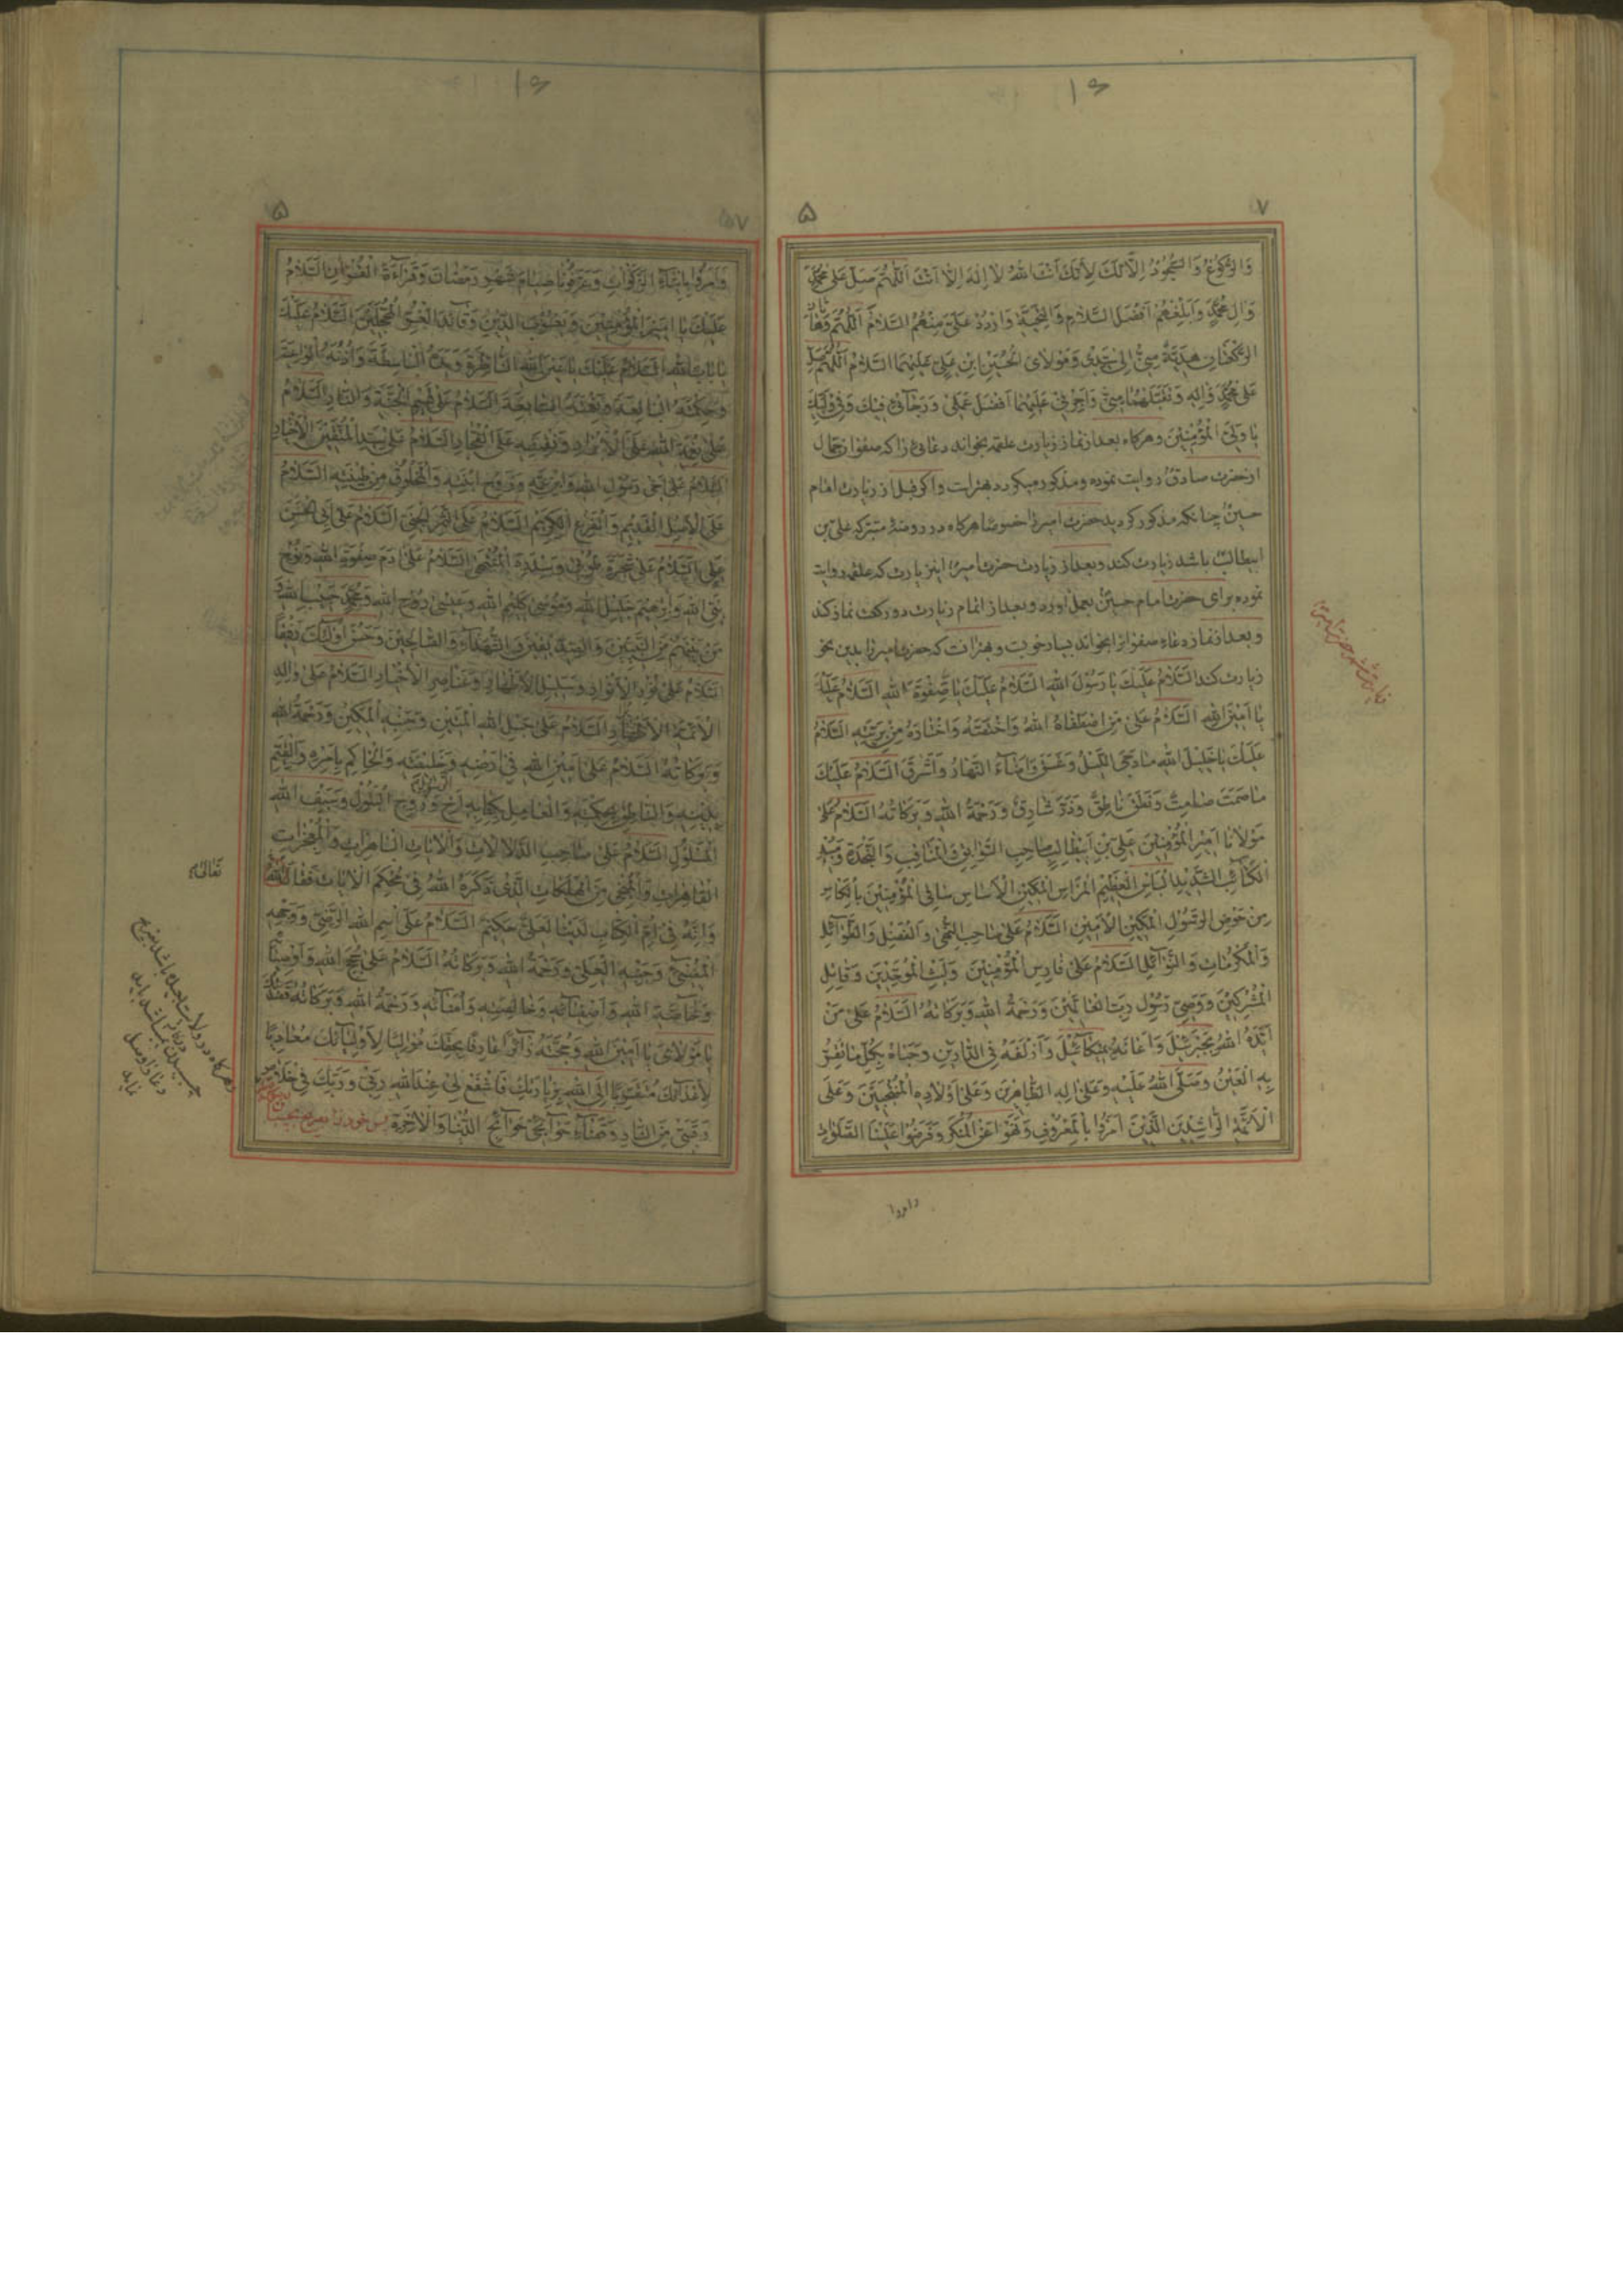 ۱۶
۵ ۷
وَالرُّكُوعُ وَالسُّجُودُ اِلّا لَكَ لِاَنَّكَ اَنْتَ اللهُ لا اِلهَ اِلّا اَنْتَ اَللّهُمَّ صَلِّ عَلى مُحَمَّدٍ
وَالِ مُحَمَّدٍ وَاَبْلِغْهُمْ اَفْضَلَ السَّلامِ وَالتَّحِيَّةِ وَارْدُدْ عَلَيَّ مِنْهُمُ السَّلامَ اَللّهُمَّ وَهاتانِ
الرَّكْعَتانِ هَدِيَّةٌ مِنّي اِلى سَيِّدي وَمَوْلايَ الْحُسَيْنِ ابْنِ عَلِيٍّ عَلَيْهِمَا السَّلامُ اَللّهُمَّ صَلِّ
عَلى مُحَمَّدٍ وَالِهِ وَتَقَبَّلْهُما مِنّي وَاجُرْني عَلَيْهِما اَفْضَلَ اَمَلي وَرَجائي فيكَ وَفي وَلِيِّكَ
يا وَلِيَّ الْمُؤْمِنينَ وهرکاه بعد از نماز زیارت علقمه بخواند دعائی را که صفوان جمال
از حضرت صادق روایت نموده ومذکور میکردد بهتر است واکر قبل از زیارت امام
حسین چنانکه مذکور کردید حضرت امیر را خصوصا هرکاه در روضهٔ متبرکه علی بن
ابیطالب باشد زیارت کند وبعد از زیارت حضرت امیر این زیارت که علقمه روایت
نموده برای حضرت امام حسین بعمل آورد وبعد از اتمام زیارت دو رکعت نماز کند
وبعد از نماز دعاء صفوان را بخواند بسیار خوبست وبهتر آنست که حضرت امیر را بدین نحو
زیارت کند اَلسَّلامُ عَلَيْكَ يا رَسُولَ اللهِ اَلسَّلامُ عَلَيْكَ يا صِفْوَةَ اللهِ اَلسَّلامُ عَلَيْكَ
يا اَمينَ اللهِ اَلسَّلامُ عَلى مَنِ اصْطَفاهُ اللهُ وَاخْتَصَّهُ وَاخْتارَهُ مِنْ بَرِيَّتِهِ اَلسَّلامُ
عَلَيْكَ يا خَليلَ اللهِ ما دَجَى اللَّيْلُ وَغَسَقَ وَاَضاءَ النَّهارُ وَاَشْرَقَ اَلسَّلامُ عَلَيْكَ
ما صَمَتَ صامِتٌ وَنَطَقَ ناطِقٌ وَذَرَّ شارِقٌ وَرَحْمَةُ اللهِ وَبَرَكاتُهُ اَلسَّلامُ عَلى
مَوْلانا اَميرِ الْمُؤْمِنينَ عَلِيِّ بْنِ اَبيطالِبٍ صاحِبِ السَّوابِقِ وَالْمَناقِبِ وَالنَّجْدَةِ وَمُبيدِ
الْكَتائِبِ الشَّديدِ الْبَأْسِ الْعَظيمِ الْمِراسِ الْمَكينِ الْاَساسِ ساقِي الْمُؤْمِنينَ بِالْكَاْسِ
مِنْ حَوْضِ الرَّسُولِ الْمَكينِ الْاَمينِ اَلسَّلامُ عَلى صاحِبِ النُّهى وَالْفَضْلِ وَالطَّوائِلِ
وَالْمَكْرُماتِ وَالنَّوائِلِ اَلسَّلامُ عَلى فارِسِ الْمُؤْمِنينَ وَلَيْثِ الْمُوَحِّدينَ وَقاتِلِ
الْمُشْرِكينَ وَوَصِيِّ رَسُولِ رَبِّ الْعالَمينَ وَرَحْمَةُ اللهِ وَبَرَكاتُهُ اَلسَّلامُ عَلى مَنْ
اَيَّدَهُ اللهُ بِجَبْرَئيلَ وَاَعانَهُ بِميكائيلَ وَاَزْلَفَهُ فِي الدّارَيْنِ وَحَباهُ بِكُلِّ ما تَقِرُّ
بِهِ الْعَيْنُ وَصَلَّى اللهُ عَلَيْهِ وَعَلى الِهِ الطّاهِرينَ وَعَلى اَوْلادِهِ الْمُنْتَجَبينَ وَعَلَى
الْاَئِمَّةِ الرّاشِدينَ الَّذينَ اَمَرُوا بِالْمَعْرُوفِ وَنَهَوْا عَنِ الْمُنْكَرِ وَفَرَضُوا عَلَيْنَا الصَّلَواتِ
وامروا
۱۶
۵ ۷
وَاَمَرُوا بِايتاءِ الزَّكَواةِ وَعَرَّفُونا صِيامَ شَهْرِ رَمَضانَ وَقَراءَةَ الْقُرْانِ اَلسَّلامُ
عَلَيْكَ يا اَميرَ الْمُؤْمِنينَ وَيَعْسُوبَ الدّينِ وَقائِدَ الْغُرِّ الْمُحَجَّلينَ اَلسَّلامُ عَلَيْكَ
يا بابَ اللهِ اَلسَّلامُ عَلَيْكَ يا عَيْنَ اللهِ النّاظِرَةَ وَيَدَهُ الْباسِطَةَ وَاُذُنَهُ الْواعِيَةَ
وَحِكْمَتَهُ الْبالِغَةَ وَنِعْمَتَهُ السّابِغَةَ اَلسَّلامُ عَلى قَسيمِ الْجَنَّةِ وَالنّارِ اَلسَّلامُ
عَلى نِعْمَةِ اللهِ عَلَى الْاَبْرارِ وَنِقْمَتِهِ عَلَى الْفُجّارِ اَلسَّلامُ عَلى سَيِّدِ الْمُتَّقينَ الْاَخْيارِ
اَلسَّلامُ عَلى اَخي رَسُولِ اللهِ وَابْنِ عَمِّهِ وَزَوْجِ ابْنَتِهِ وَالْمَخْلُوقِ مِنْ طينَتِهِ اَلسَّلامُ
عَلَى الْاَصْلِ الْقَديمِ وَالْفَرْعِ الْكَريمِ اَلسَّلامُ عَلَى الثَّمَرِ الْجَنِيِّ اَلسَّلامُ عَلى اَبِي الْحَسَنِ
عَلِيٍّ اَلسَّلامُ عَلى شَجَرَةِ طُوبى وَسِدْرَةِ الْمُنْتَهى اَلسَّلامُ عَلى ادَمَ صِفْوَةِ اللهِ وَنُوحٍ
نَبِيِّ اللهِ وَاِبْرهيمَ خَليلِ اللهِ وَمُوسى كَليمِ اللهِ وَعيسى رُوحِ اللهِ وَمُحَمَّدٍ حَبيبِ اللهِ وَ
مَنْ بَيْنَهُمْ مِنَ النَّبِيّينَ وَالصِّدّيقينَ وَالشُّهَداءِ وَالصّالِحينَ وَحَسُنَ اُولئِكَ رَفيقاً
اَلسَّلامُ عَلى نُورِ الْاَنْوارِ وَسَليلِ الْاَطْهارِ وَعَناصِرِ الْاَخْيارِ اَلسَّلامُ عَلى والِدِ
الْاَئِمَّةِ الْاَطْهارِ اَلسَّلامُ عَلى حَبْلِ اللهِ الْمَتينِ وَجَنْبِهِ الْمَكينِ وَرَحْمَةُ اللهِ
وَبَرَكاتُهُ اَلسَّلامُ عَلى اَمينِ اللهِ في اَرْضِهِ وَخَليفَتِهِ وَالْحاكِمِ بِاَمْرِهِ وَالْقَيِّمِ
بِدينِهِ وَالنّاطِقِ بِحِكْمَتِهِ وَالْعامِلِ بِكِتابِهِ اَخِ الرَّسُولِ وَزَوْجِ الْبَتُولِ وَسَيْفِ اللهِ
الْمَسْلُولِ اَلسَّلامُ عَلى صاحِبِ الدَّلالاتِ وَالْاياتِ الْباهِراتِ وَالْمُعْجِزاتِ
الْقاهِراتِ وَالْمُنْجي مِنَ الْهَلَكاتِ الَّذي ذَكَرَهُ اللهُ في مُحْكَمِ الْاياتِ فَقالَ
تَعالى
وَاِنَّهُ في اُمِّ الْكِتابِ لَدَيْنا لَعَلِيٌّ حَكيمٌ اَلسَّلامُ عَلَى اسْمِ اللهِ الرَّضِيِّ وَوَجْهِهِ
الْمُضيئِ وَجَنْبِهِ الْعَلِيِّ وَرَحْمَةُ اللهِ وَبَرَكاتُهُ اَلسَّلامُ عَلى حُجَجِ اللهِ وَاَوْصِيائِهِ
وَخاصَّةِ اللهِ وَاَصْفِيائِهِ وَخالِصَتِهِ وَاُمَنائِهِ وَرَحْمَةُ اللهِ وَبَرَكاتُهُ قَصَدْتُكَ
يا مَوْلايَ يا اَمينَ اللهِ وَحُجَّتَهُ زائِراً عارِفاً بِحَقِّكَ مُوالِياً لِاَوْلِيائِكَ مُعادِياً
لِاَعْدائِكَ مُتَقَرِّباً اِلَى اللهِ بِزِيارَتِكَ فَاشْفَعْ لي عِنْدَ اللهِ رَبّي وَرَبِّكَ في خَلاصِ
رَقَبَتي مِنَ النّارِ وَقَضاءِ حَوائِجي حَوائِجِ الدُّنْيا وَالْاخِرَةِ پس خود را بضریح بچسباند